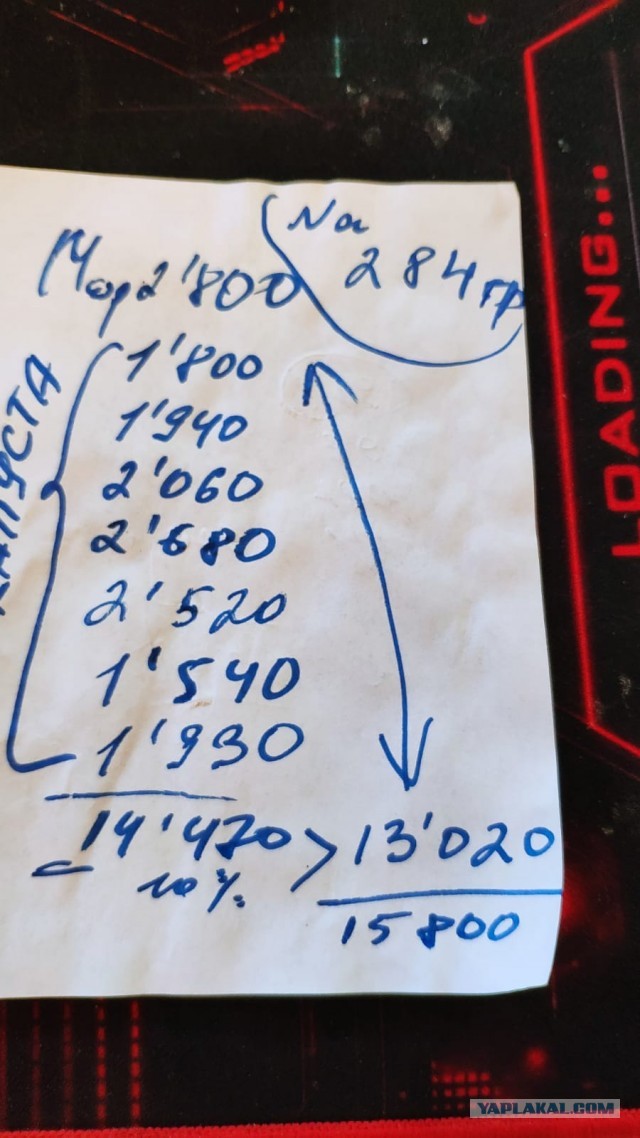 Na
284гр
Мор 2'800
КАПУСТА
1'800
1'940
2'060
2'680
2'520
1'540
1'930
14'470 > 13'020
- 10%
15800
LOADING...
YAPLAKAL.COM